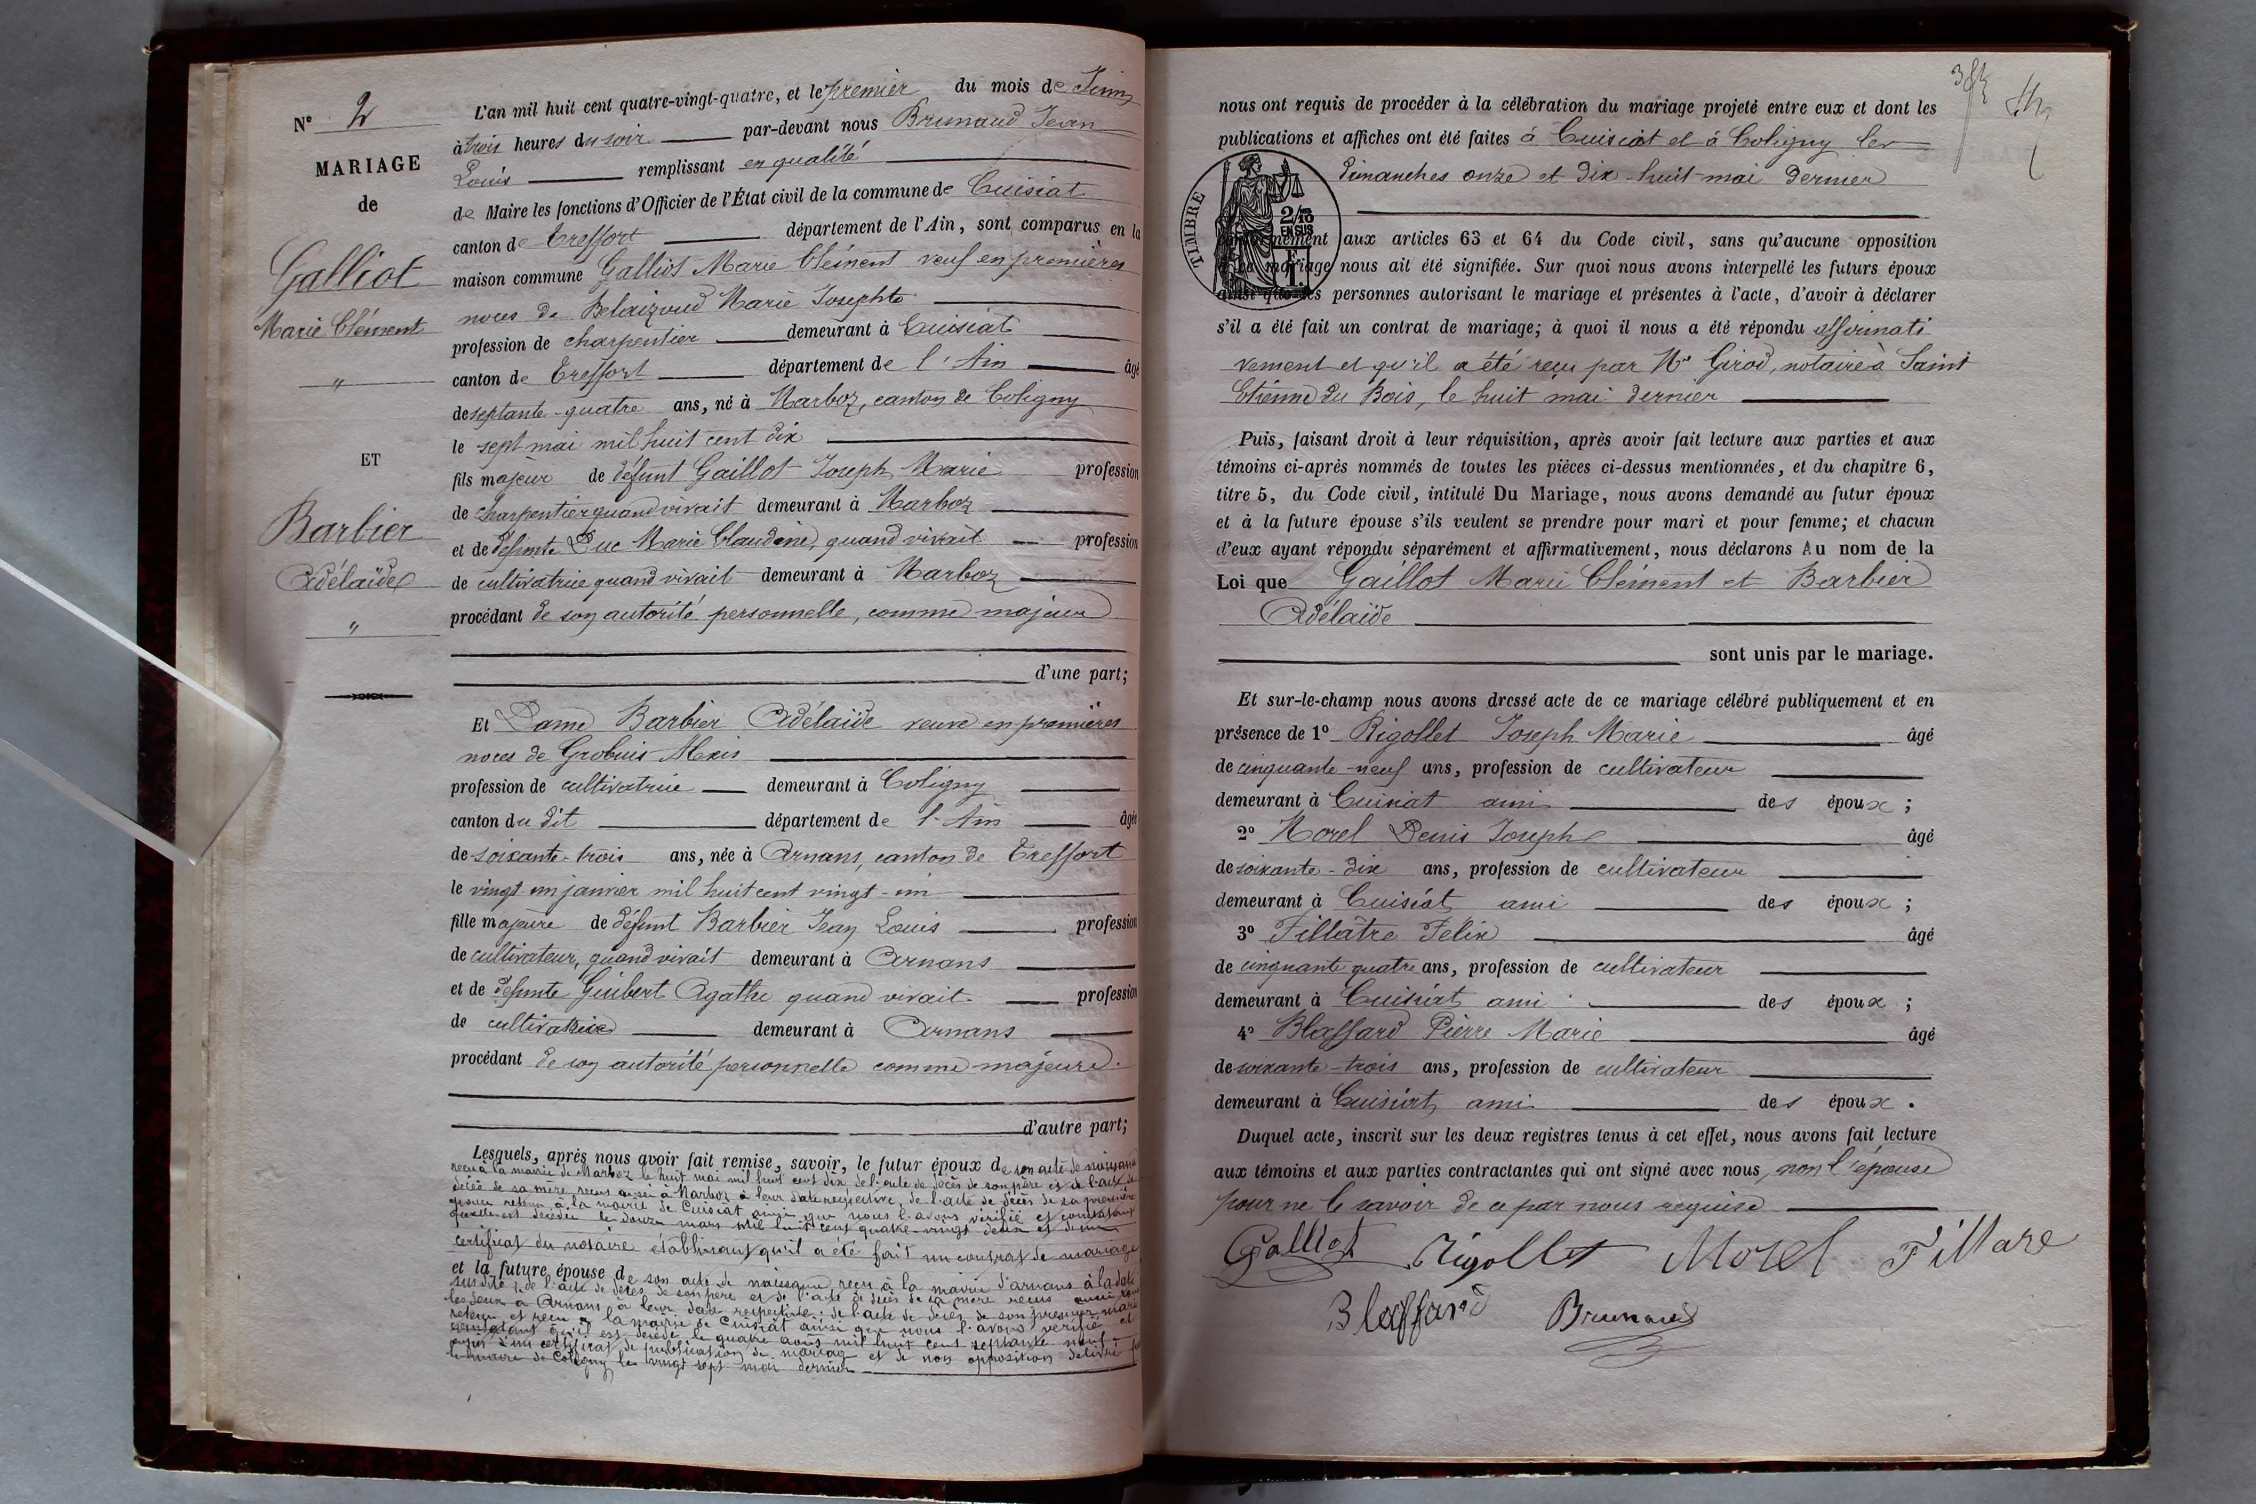 N° 2
MARIAGE
de
Galliot
Marie Clément
"
ET
Barbier
Adélaïde
"
L'an mil huit cent quatre-vingt-quatre, et le premier du mois de Juin
à trois heures du soir par-devant nous Brunaud Jean
Louis remplissant en qualité
de Maire les fonctions d'Officier de l'État civil de la commune de Cuisiat
canton de Treffort département de l'Ain, sont comparus en la
maison commune Galliot Marie Clément veuf en premières
noces de Belaizoud Marie Josephte
profession de charpentier demeurant à Cuisiat
canton de Treffort département de l'Ain âgé
de septante-quatre ans, né à Marboz, canton de Coligny
le sept mai mil huit cent dix
fils majeur de défunt Gaillot Joseph Marie profession
de charpentier quand vivait demeurant à Marboz
et de défunte Duc Marie Claudine, quand vivait profession
de cultivatrice quand vivait demeurant à Marboz
procédant de son autorité personnelle, comme majeur
d'une part;
Et Dame Barbier Adélaïde veuve en premières
noces de Grobuis Alexis
profession de cultivatrice demeurant à Coligny
canton du dit département de l'Ain âgée
de soixante-trois ans, née à Arnans, canton de Treffort
le vingt un janvier mil huit cent vingt-un
fille majeure de défunt Barbier Jean Louis profession
de cultivateur, quand vivait demeurant à Arnans
et de défunte Guibert Agathe quand vivait profession
de cultivatrice demeurant à Arnans
procédant de son autorité personnelle comme majeure.
d'autre part;
Lesquels, après nous avoir fait remise, savoir, le futur époux de son acte de naissance
reçu à la mairie de Marboz le huit mai mil huit cent dix, de l'acte de décès de son père et de l'acte de
décès de sa mère reçus aussi à Marboz à leur date respective, de l'acte de décès de sa première
retenu à la mairie de Cuisiat ainsi que nous l'avons vérifié et constatant
qu'elle est décédée le douze mars mil huit cent quatre-vingt deux et d'un
certificat du notaire établissant qu'il a été fait un contrat de mariage
et la future épouse de son acte de naissance reçu à la mairie d'Arnans à la date
susdite, de l'acte de décès de son père et de l'acte de décès de sa mère reçus
les deux à Arnans à leur date respective, de l'acte de décès de son premier mari
retenu et reçu à la mairie de Cuisiat ainsi que nous l'avons vérifié et
constatant qu'il est décédé le quatre août mil huit cent septante neuf
d'un certificat de publication de mariage et de non opposition délivré par
le maire de Coligny le vingt sept mai dernier
nous ont requis de procéder à la célébration du mariage projeté entre eux et dont les
publications et affiches ont été faites à Cuisiat et à Coligny les
dimanches onze et dix-huit mai dernier
TIMBRE
2/10
EN SUS
conformément aux articles 63 et 64 du Code civil, sans qu'aucune opposition
à ce mariage nous ait été signifiée. Sur quoi nous avons interpellé les futurs époux
ainsi que les personnes autorisant le mariage et présentes à l'acte, d'avoir à déclarer
s'il a été fait un contrat de mariage; à quoi il nous a été répondu affirmati
vement et qu'il a été reçu par Me Girod, notaire à Saint
Etienne du Bois, le huit mai dernier
Puis, faisant droit à leur réquisition, après avoir fait lecture aux parties et aux
témoins ci-après nommés de toutes les pièces ci-dessus mentionnées, et du chapitre 6,
titre 5, du Code civil, intitulé Du Mariage, nous avons demandé au futur époux
et à la future épouse s'ils veulent se prendre pour mari et pour femme; et chacun
d'eux ayant répondu séparément et affirmativement, nous déclarons Au nom de la
Loi que Gaillot Marie Clément et Barbier
Adélaïde
sont unis par le mariage.
Et sur-le-champ nous avons dressé acte de ce mariage célébré publiquement et en
présence de 1° Rigollet Joseph Marie âgé
de cinquante-neuf ans, profession de cultivateur
demeurant à Cuisiat ami des époux;
2° Morel Denis Joseph âgé
de soixante-dix ans, profession de cultivateur
demeurant à Cuisiat ami des époux;
3° Fillâtre Félix âgé
de cinquante quatre ans, profession de cultivateur
demeurant à Cuisiat ami des époux;
4° Blaffard Pierre Marie âgé
de soixante-trois ans, profession de cultivateur
demeurant à Cuisiat ami des époux.
Duquel acte, inscrit sur les deux registres tenus à cet effet, nous avons fait lecture
aux témoins et aux parties contractantes qui ont signé avec nous, non l'épouse
pour ne le savoir de ce par nous requise
Galliot Rigollet Morel Fillare
Blaffard Brunaud